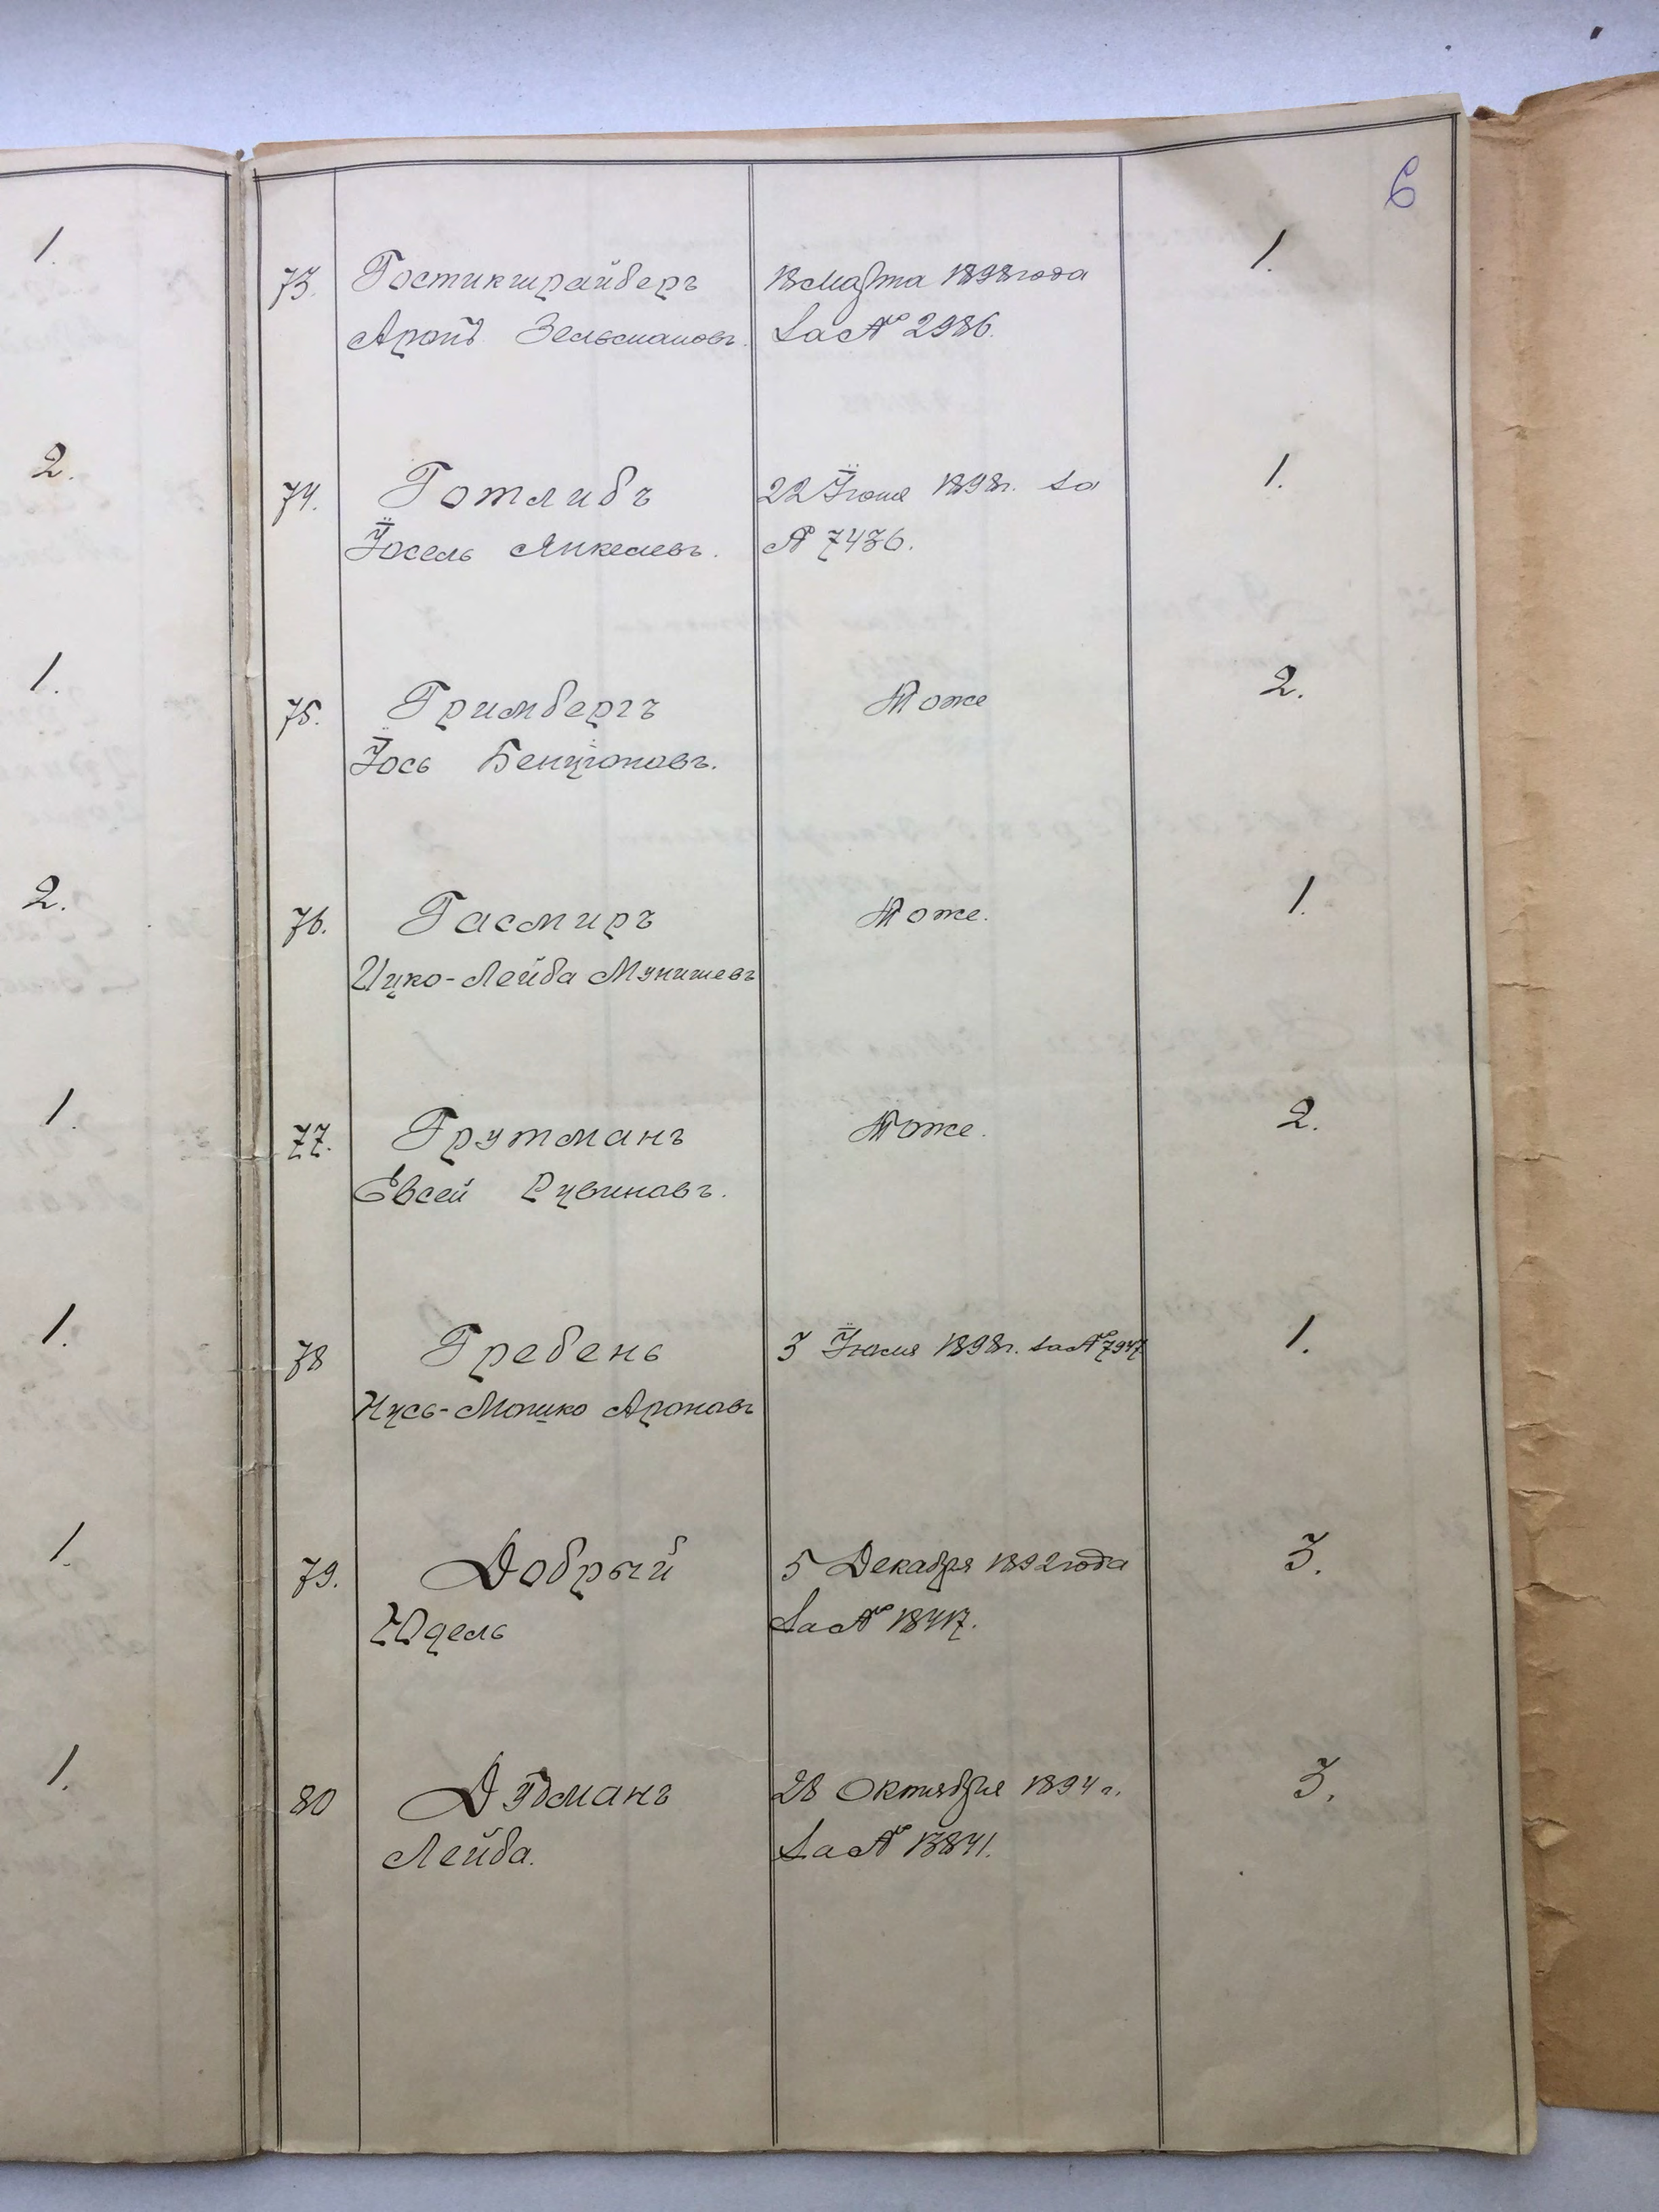 6
1.
2.
1.
2.
1.
1.
1.
1.
73. Гостикшрайберъ 18 Марта 1898 года 1.
Аронъ Зельмановъ. за № 2986.
74. Готлибъ 22 Іюня 1898 г. за 1.
Іосель Янкелевъ. № 7436.
75. Гримбергъ Тоже 2.
Іось Бенціоновъ.
76. Гасмиръ Тоже. 1.
Ицко-Лейба Мунишевъ
77. Грутманъ Тоже. 2.
Евсей Рувиновъ.
78 Гребень 3 Іюля 1898 г. за № 7947 1.
Нусь-Мошко Ароновъ
79. Добрый 5 Декабря 1892 года 3.
Юдель за № 18417.
80 Дудманъ 28 Октября 1894 г. 3.
Лейба. за № 13841.